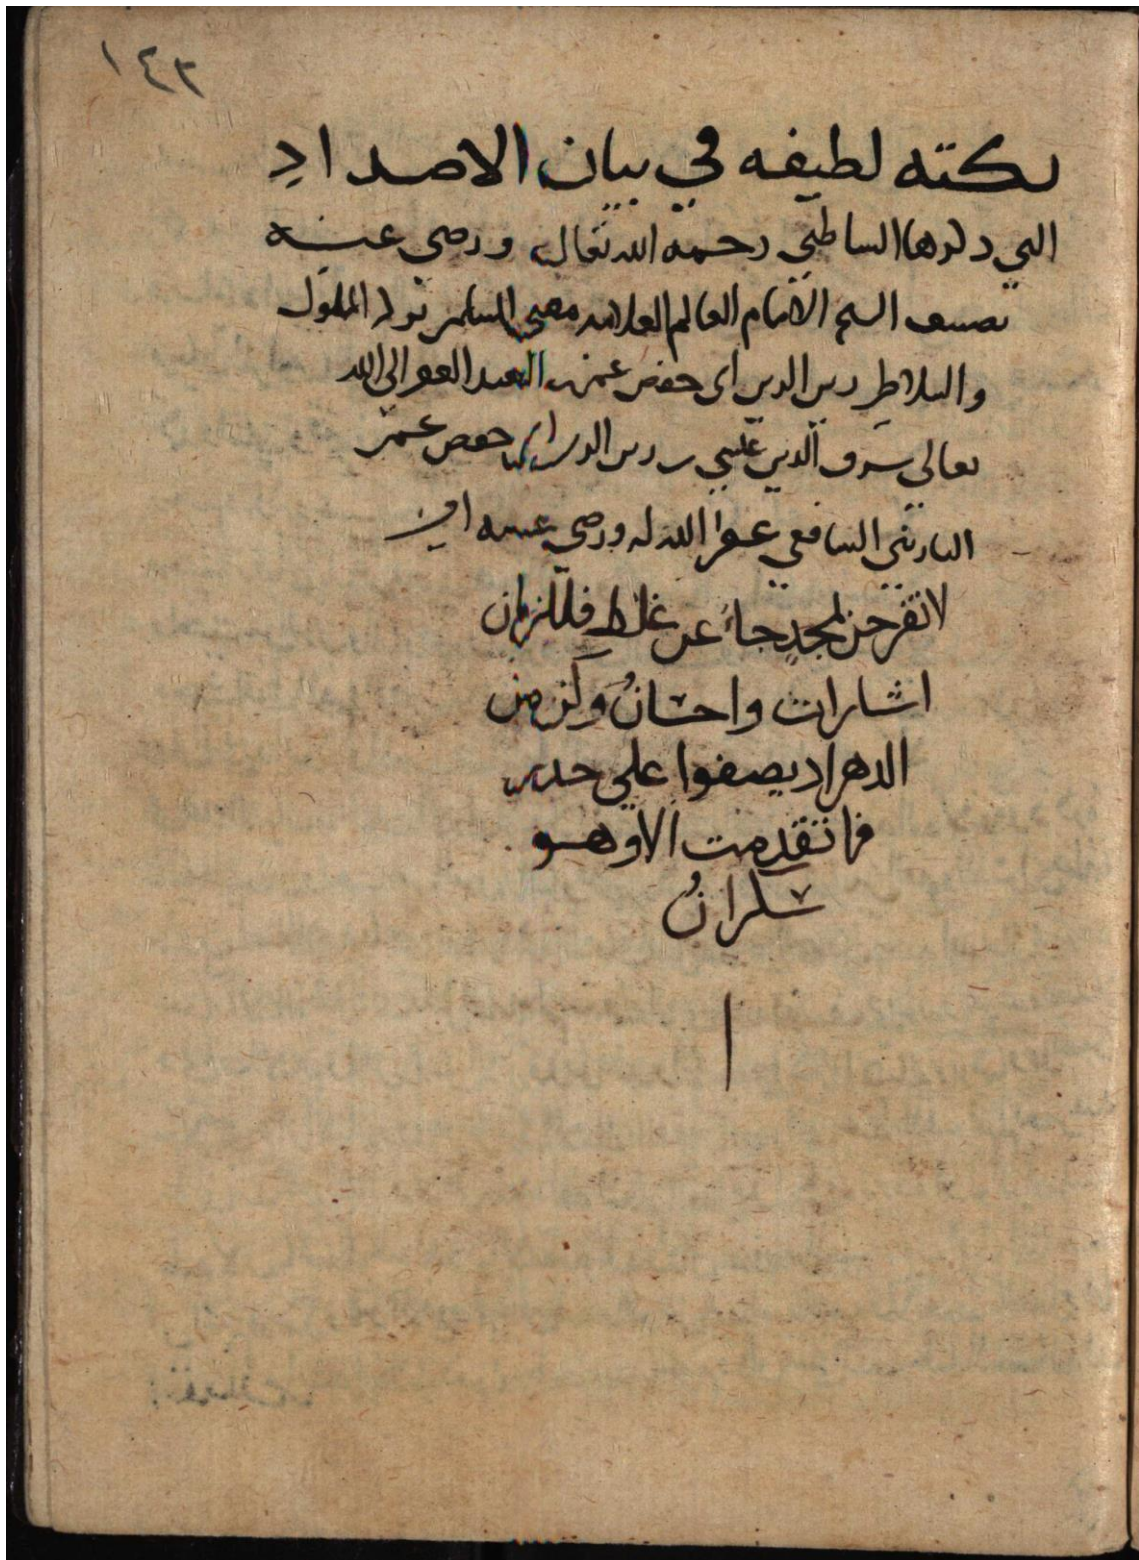 ١٤٣
نكته لطيفه في بيان الاضداد
التي ذكرها الشاطبي رحمه الله تعالى ورضي عنه
تصنيف الشيخ الامام العالم العلامه مفتي المسلمين الملوك
والسلاطين زين الدين ابي حفص عمر العبد الفقير الى الله
تعالى شرف الدين عيسى بن زين الدين ابي حفص عمر
الشافعي غفر الله له ورضي عنه امين
لا تفرحن لمجد جاء عن غلط فللزمان
اشارات واحسانُ وكن من
الدهر اذ يصفوا علي حذر
فما تقدمت الا وهو
سكرانُ